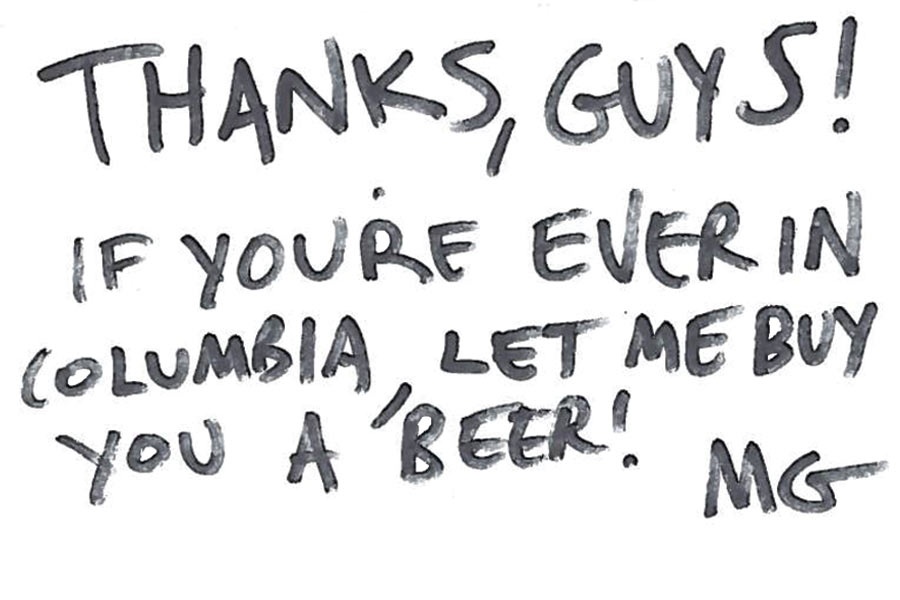 THANKS, GUYS!
IF YOU'RE EVER IN
COLUMBIA, LET ME BUY
YOU A BEER!
MG